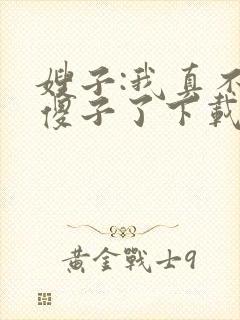 嫂子:我真不
傻子了下載
黃金戰士9